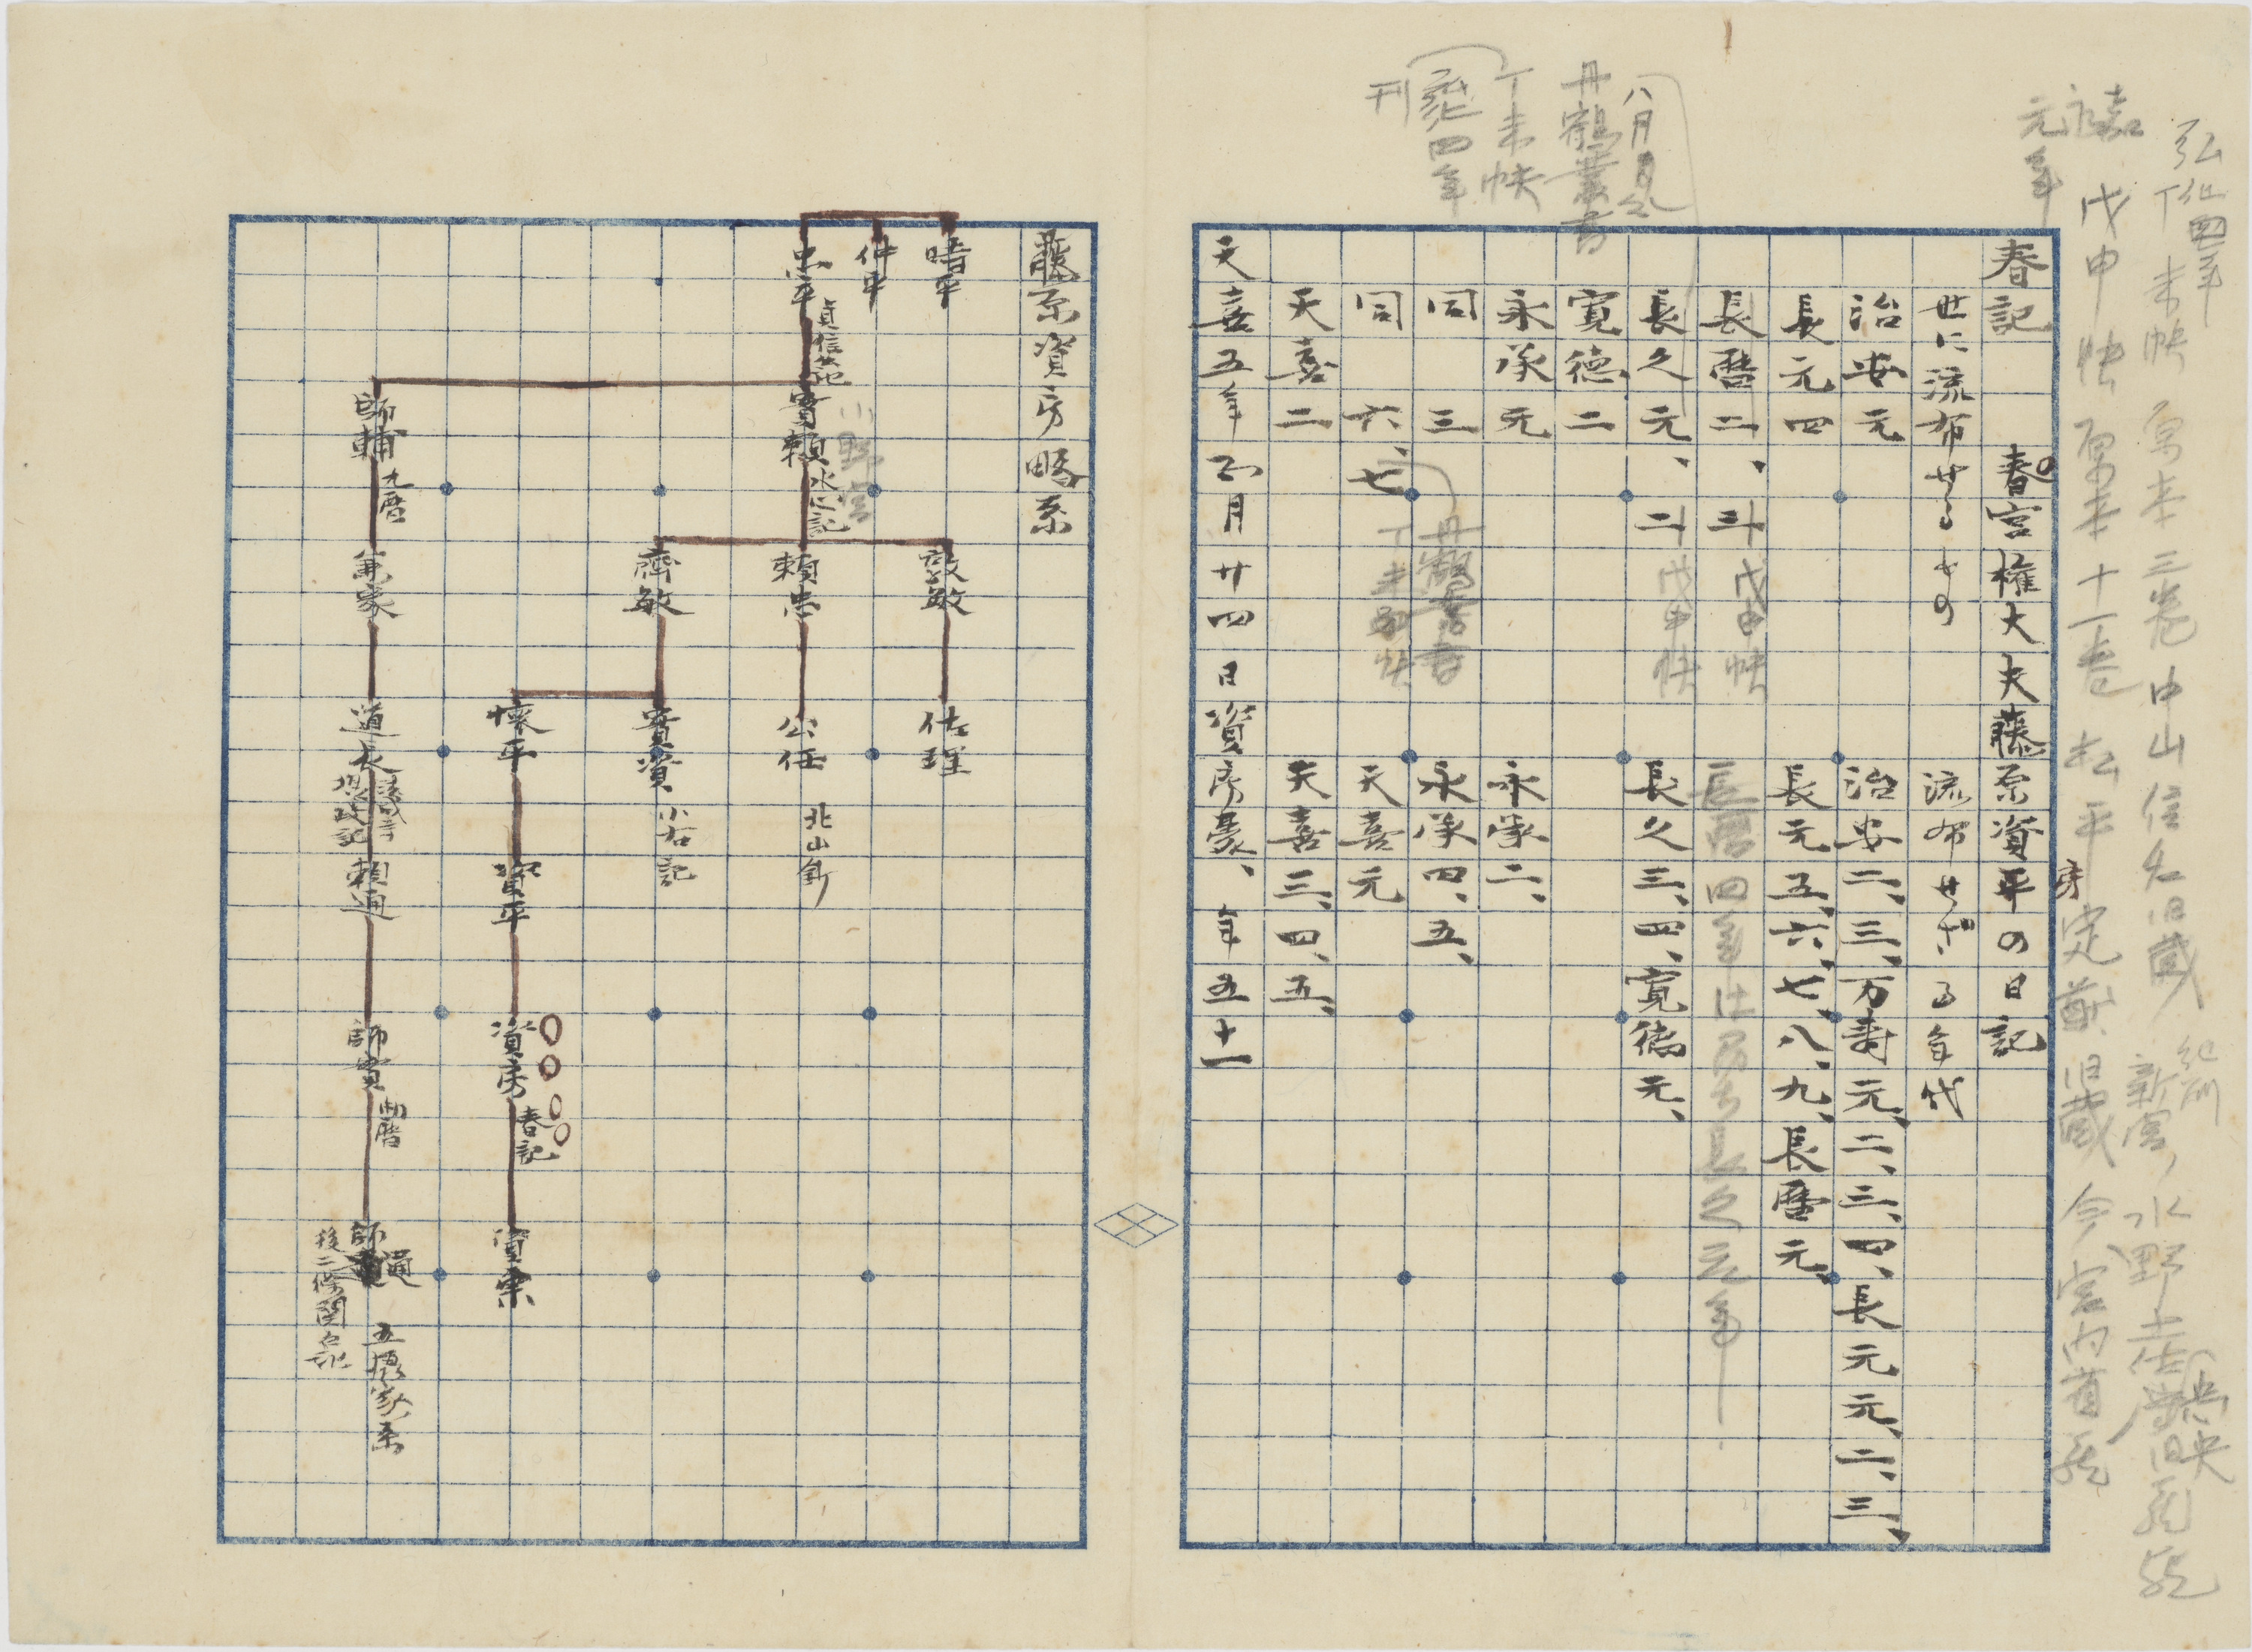 弘化四年
丁未帙 原本三卷 中山信名旧蔵 紀州新宮 水野土佐守忠央旧蔵
嘉永元年
戊申帙 原本十一卷 松平定猷旧蔵 今宮内省蔵
春記 春宮権大夫藤原資平の日記
房
世に流布せるもの 流布せざる年代
治安元 治安二、三、万寿元、二、三、四、長元元、二、三、
長元四 長元五、六、七、八、九、長暦元、
長暦二、三、 戊申帙 長暦四年ハ即ち長久元年
長久元、二 戊申帙 長久三、四、寛徳元、
寛德二
永承元 永承二、
同 三 永承四、五、
同 六、七 天喜元
天喜二 天喜三、四、五、
天喜五年正月廿四日資房薨、年五十一
八月
丹鶴叢書
丁未帙
弘化四年
刊
丹鶴叢書
丁未帙
藤原資房略系
時平
仲平
忠平 貞信公記
實頼 水心記
小野宮
師輔 九暦
敦敏
頼忠
齊敏
兼家
佐理
公任 北山鈔
實資 小右記
懐平
道長 御堂関白記
資平
頼通
資房 春記
師實
資宗
師通
後二條関白記
五摂家系